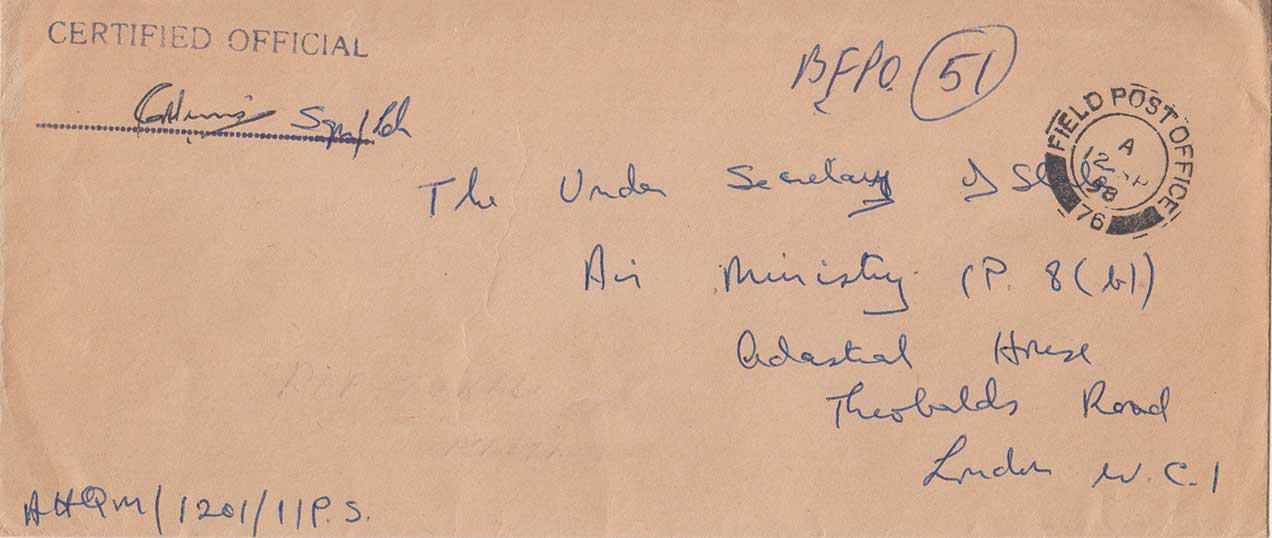 CERTIFIED OFFICIAL
BFPO. 51
Sqn/Ldr
FIELD POST OFFICE
A
12 SP
58
76
The Under Secretary of State
Air Ministry (P. 8 (b))
Adastral House
Theobalds Road
London W.C.1
AHQM/1201/1/P.S.